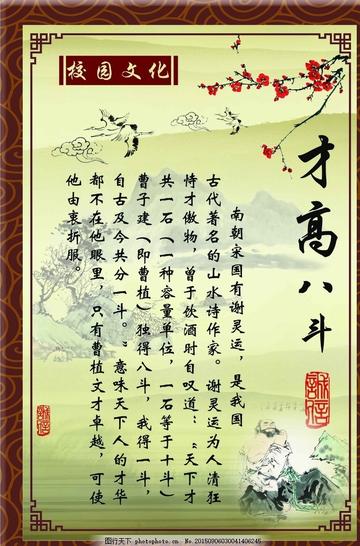 校园文化
才高八斗
南朝宋国有谢灵运，是我国
古代著名的山水诗作家。谢灵运为人清狂
恃才傲物，曾于饮酒时自叹道：“天下才
共一石（一种容量单位，一石等于十斗）
曹子建（即曹植）独得八斗，我得一斗，
自古及今共分一斗。”意味天下人的才华
都不在他眼里，只有曹植文才卓越，可使
他由衷折服。
誠信
誠信
图行天下 photophoto.cn No.20150906030041406245